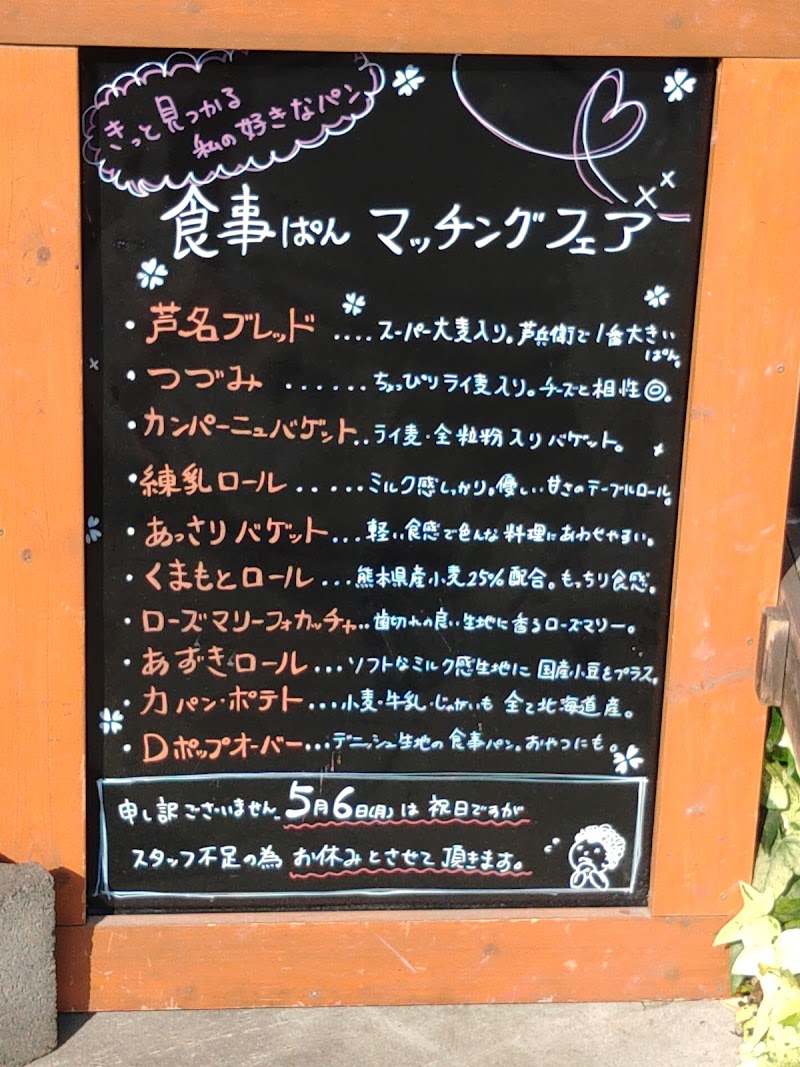 きっと見つかる
私の好きなパン
食事ぱん マッチングフェア
・芦名ブレッド ....スーパー大麦入り。芦兵衛で1番大きい
ぱん。
・つづみ .......ちょっぴりライ麦入り。チーズと相性◎。
・カンパーニュバゲット..ライ麦・全粒粉入りバゲット。
・練乳ロール .....ミルク感しっかり。優しい甘さのテーブルロール。
・あっさりバゲット...軽い食感で色んな料理にあわせやすい。
・くまもとロール ...熊本県産小麦25%配合。もっちり食感。
・ローズマリーフォカッチャ..歯切れの良い生地に香るローズマリー。
・あずきロール...ソフトなミルク感生地に国産小豆をプラス。
・カパン・ポテト....小麦・牛乳・じゃがいも 全て北海道産。
・Dポップオーバー...デニッシュ生地の食事パン。おやつにも。
申し訳ございません。5月6日(月)は祝日ですが
スタッフ不足の為 お休みとさせて頂きます。